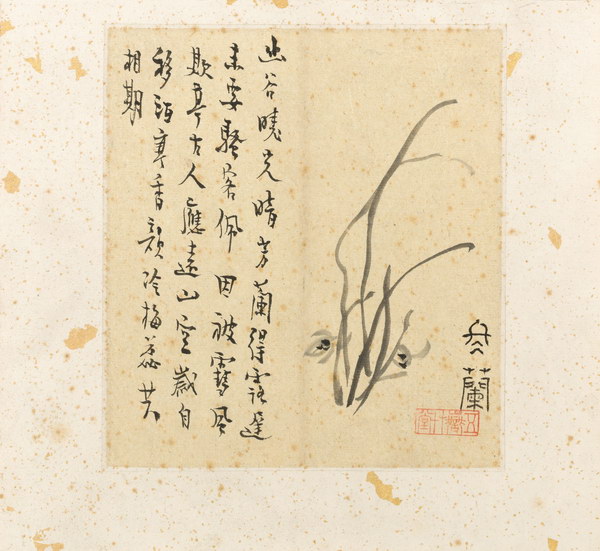 冬蘭
幽谷曉光晴芳蘭得露遲
未要騷客佩因被雪風
欺亭古人應遠山空歲自
移酒寒香韻冷梅蕊共
相期